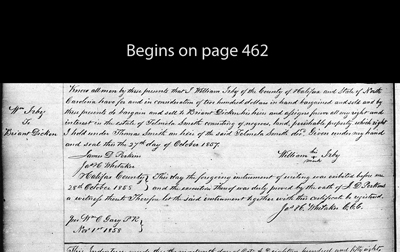 Begins on page 462
Know all men by these presents that I William Irby of the County of Halifax and State of North
Wm Irby
Carolina have for and in consideration of two hundred dollars in hand bargained and sold and by
To
these presents do bargain and sell to Briant Dicken his heirs and assigns from all my right and
Briant Dicken
interest in the estate of Telmila Smith consisting of negroes, land, perishable property, which right
I hold under Thomas Smith an heir of the said Telmila Smith decd. Given under my hand
and seal this the 27th day of October 1857.
James D Perkins
William his mark Irby
Jas H Whitaker
Halifax County } This day the foregoing instrument of writing was exhibited before me
28th October 1858 } and the execution thereof was duly proved by the oath of J. D. Perkins
a witness thereto Therefore let the said instrument together with this certificate be registered.
Jas H. Whitaker C.C.C.
Jno Wm O Gary P.R.
Nov 1st 1858